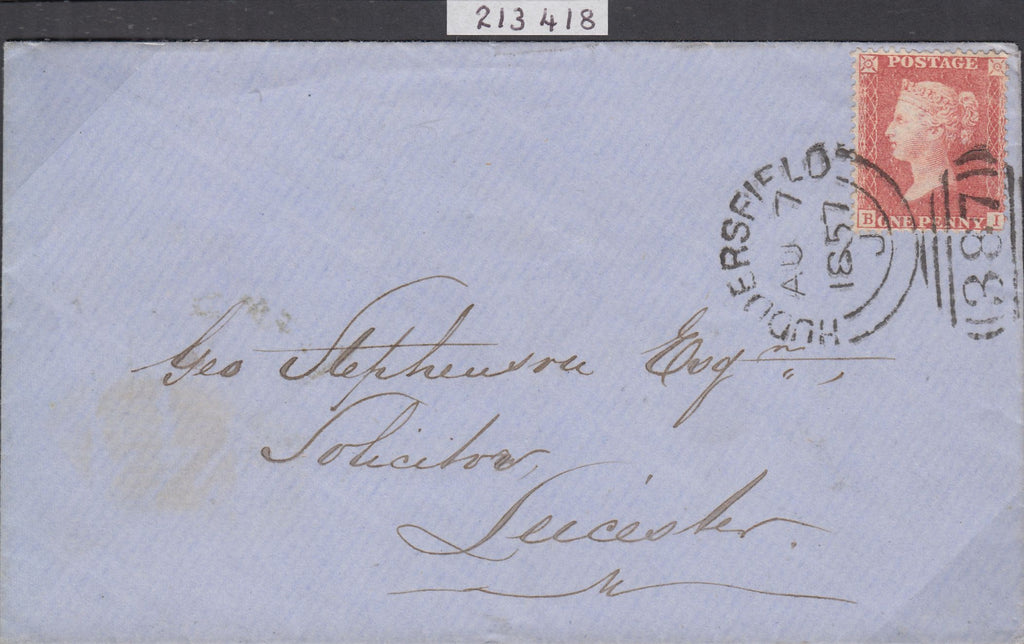 213 418
POSTAGE
B ONE PENNY I
HUDDERSFIELD
AU 7
1857
J
387
Geo Stephenson Esqre,
Solicitor
Leicester.